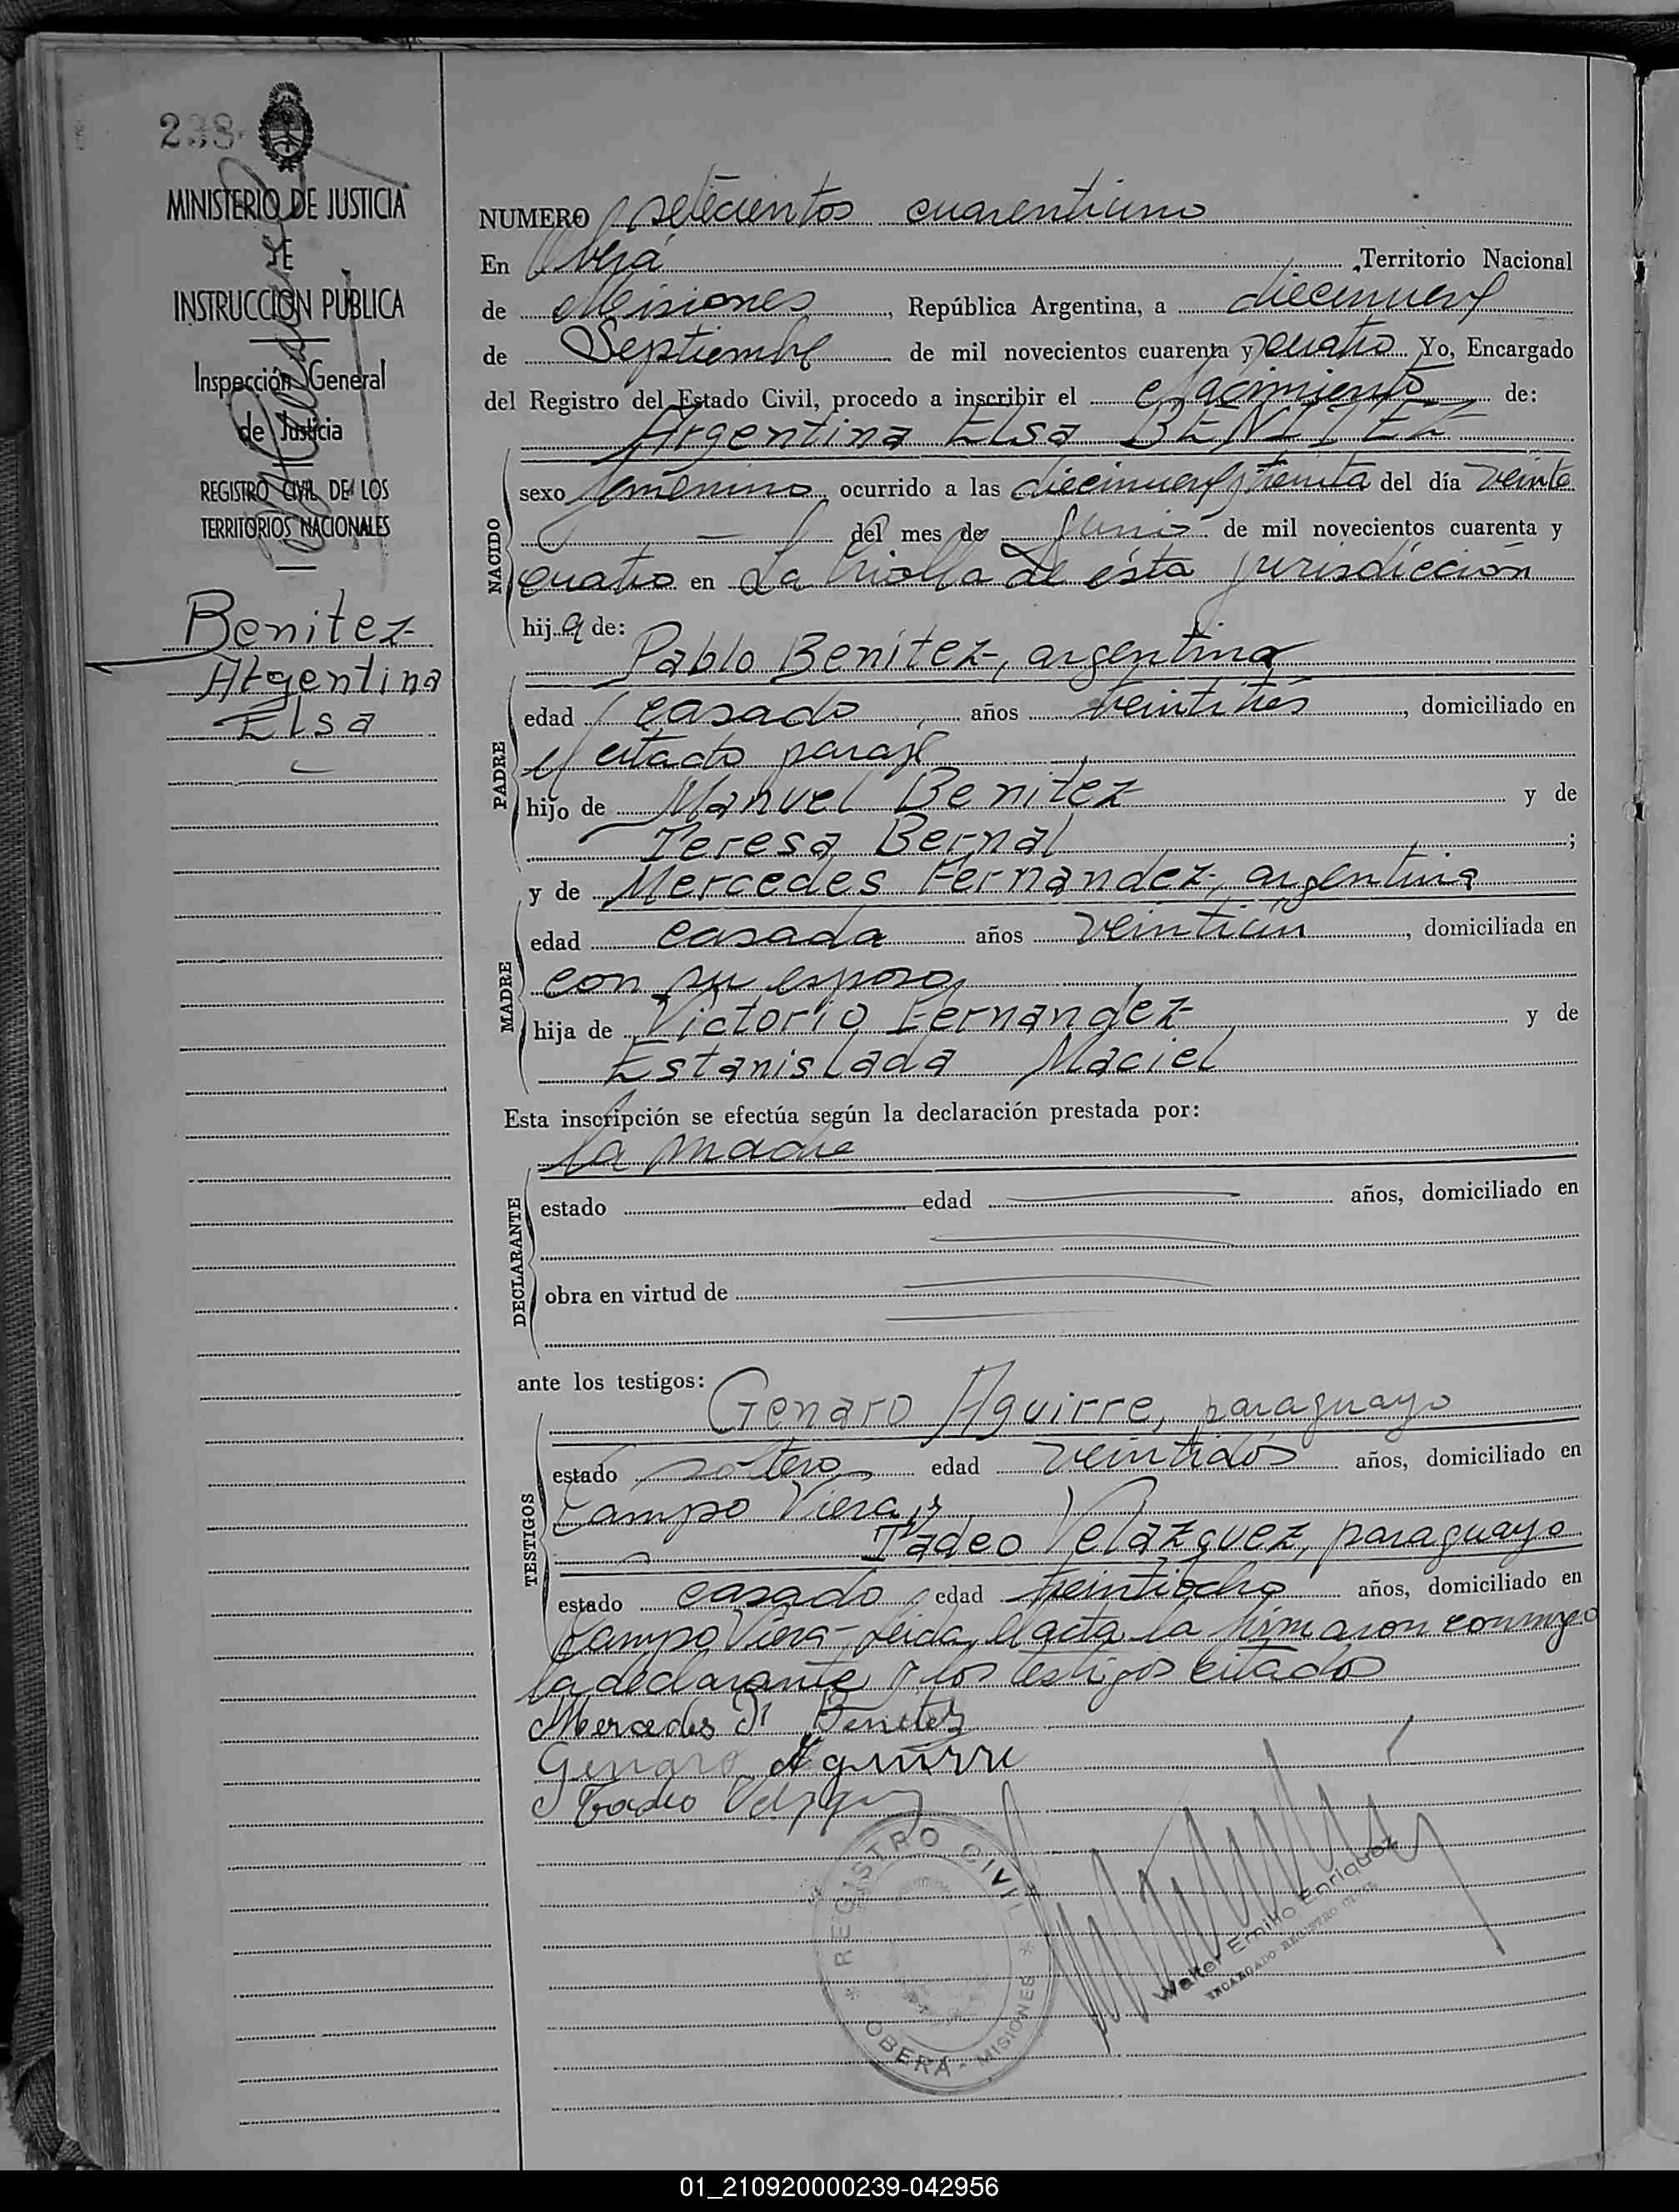 238
MINISTERIO DE JUSTICIA
E
INSTRUCCIÓN PÚBLICA
Inspección General
de Justicia
REGISTRO CIVIL DE LOS
TERRITORIOS NACIONALES
Benitez
Argentina
Elsa
NUMERO setecientos cuarentiuno
En Oberá Territorio Nacional
de Misiones, República Argentina, a diecinueve
de Septiembre de mil novecientos cuarenta y cuatro Yo, Encargado
del Registro del Estado Civil, procedo a inscribir el nacimiento de:
Argentina Elsa BENITEZ
NACIDO
sexo femenino ocurrido a las diecinueve y treinta del día veinte
del mes de Junio de mil novecientos cuarenta y
cuatro en La Criolla de ésta jurisdicción
hija de:
Pablo Benítez, argentino
PADRE
edad casado, años veintitrés, domiciliado en
el citado paraje
hijo de Manuel Benitez y de
Teresa Bernal;
y de Mercedes Fernandez, argentina
MADRE
edad casada años veintiún, domiciliada en
con su esposo,
hija de Victorio Fernandez y de
Estanislada Maciel
Esta inscripción se efectúa según la declaración prestada por:
la madre
DECLARANTE
estado edad años, domiciliado en
obra en virtud de
ante los testigos:
Genaro Aguirre, paraguayo
TESTIGOS
estado soltero, edad veintidós años, domiciliado en
Campo Viera, y
Tadeo Velazquez, paraguayo
estado casado, edad años, domiciliado en
Campo Viera- Leida el acta la firmaron conmigo
la declarante y los testigos citados
Mercedes Benitez
Genaro Aguirre
Tadeo
REGISTRO CIVIL
OBERA - MISIONES
Walter Emilio Enriquez
ENCARGADO REGISTRO CIVIL
01_210920000239-042956